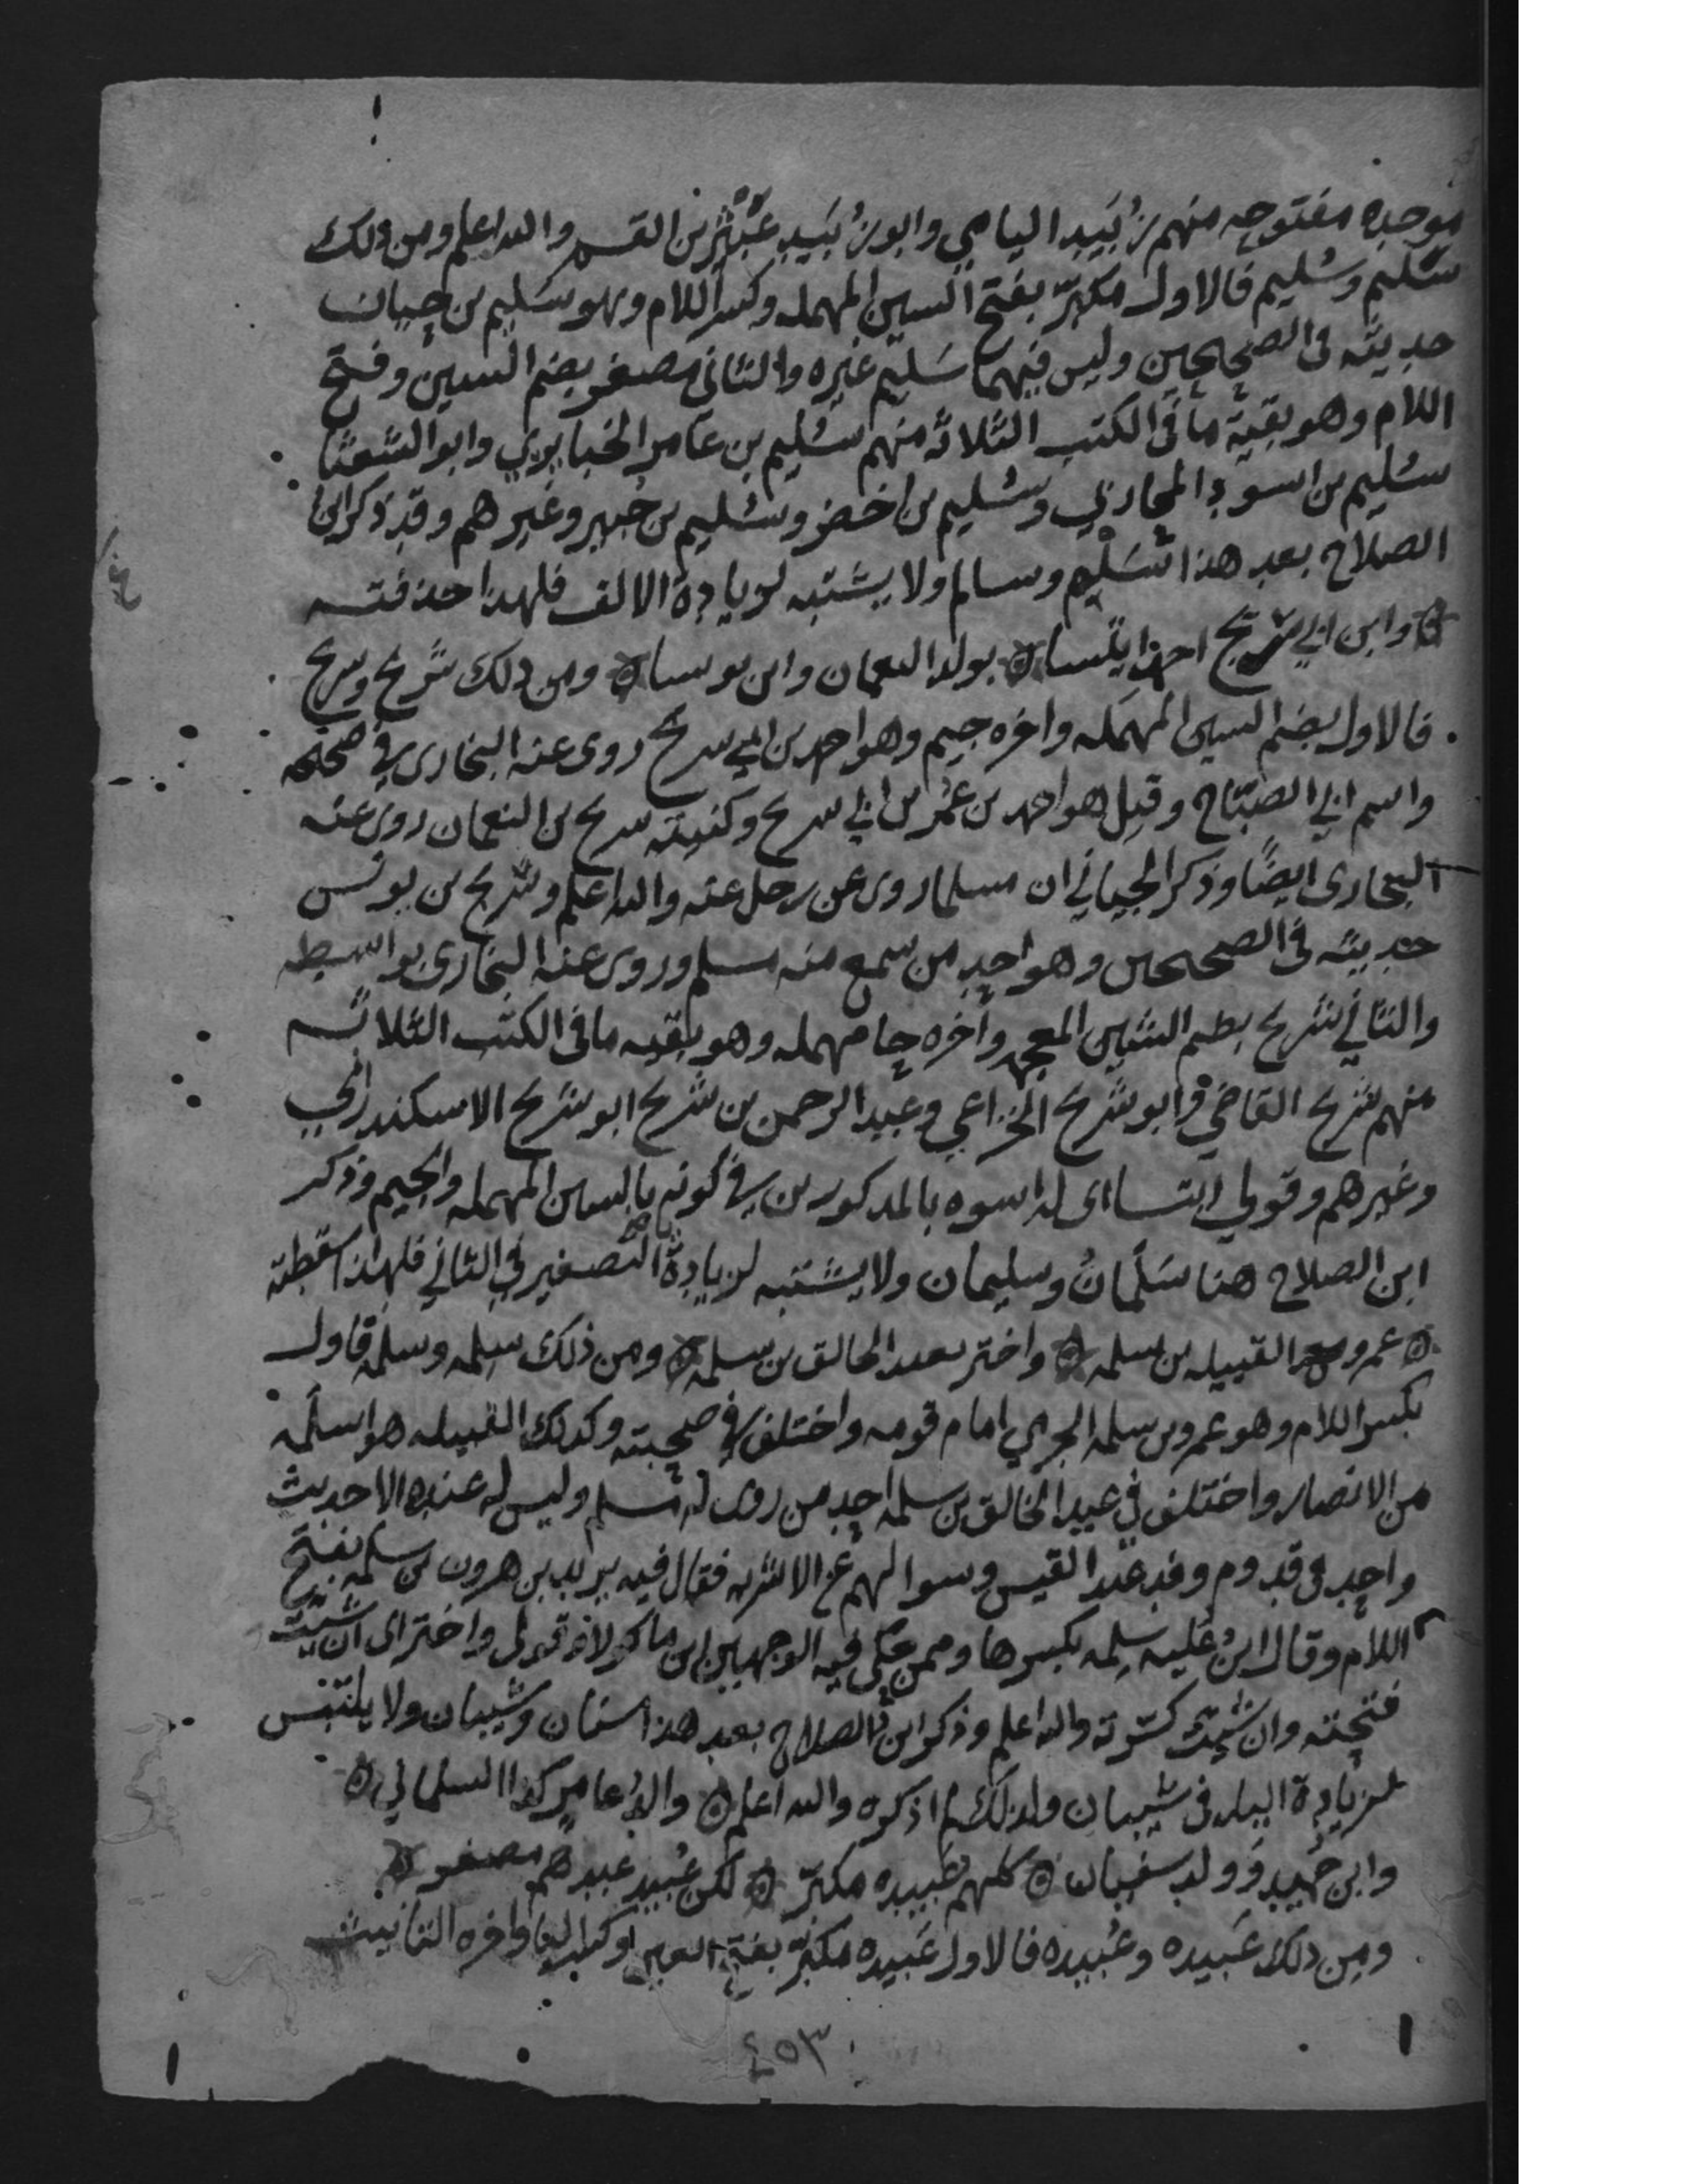 موحده مفتوحه منهم زُبَيد اليامي وابو زُبَيد عَبْثَر بن القسم والله اعلم ومن ذلك
سَليم وسُليم فالاول مكبّر بفتح السين المهمله وكسر اللام وهو سَليم بن حيان
حديثه في الصحيحين وليس فيهما سَليم غيره والثاني مصغر بضم السين وفتح
اللام وهو بقية ما في الكتب الثلاثه منهم سُليم بن عامر الخبايري وابو الشعثا
سُليم بن اسود المحاربي وسُليم بن اخضر وسُليم بن جبير وغيرهم وقد ذكر ابن
الصلاح بعد هذا سَلْم وسالم ولا يشتبه لزيادة الالف فلهذا حذفته
وابن ابي سُريج احمد ايتسا ۞ بولد النعمان وابن يونسا ۞ ومن ذلك سُريج وشريح
فالاول بضم السين المهمله واخره جيم وهو احمد بن ابي سريج روى عنه البخاري في صحيحه
واسم ابي الصبّاح وقيل هو احمد بن عُمَر بن ابي سريج وكنيته سريج بن النعمان روى عنه
البخاري ايضًا وذكر الجياني ان مسلما روى عن رجل عنه والله اعلم وسُريج بن يونس
حديثه في الصحيحين وهو احد من سمع منه مسلم وروى عنه البخاري بواسطه
والثاني شُريح بضم الشين المعجمه واخره حا مهمله وهو بقيه ما في الكتب الثلاثه
منهم شريح القاضي وابو شريح الخزاعي وعبد الرحمن بن شريح ابو شريح الاسكندراني
وغيرهم وقولي ايتسا اى له اسوه بالمذكورين في كونه بالسين المهمله والجيم وذكر
ابن الصلاح هنا سَلْمانُ وسليمان ولا يشتبه لزيادة ياء التصغير في الثاني فلهذا اسقطته
۞ عمرو مع القبيله بن سلمه ۞ واختر بعبد الخالق بن سلمه ۞ ومن ذلك سلِمه وسلَمه فاول
بكسر اللام وهو عمرو بن سلمه الجرمي امام قومه واختلف في صحبته وكذلك القبيله هو اسلمه
من الانصار واختلف في عبد الخالق بن سلمه احد من روى له مسلم وليس له عنده الا حديث
واحد في قدوم وفد عبد القيس وسوالهم عن الاشربه فقال فيه يزيد بن هرون بن سلمه بفتح
اللام وقال ابنُ عُليه سلِمه بكسرها وممن حكى فيه الوجهين ابن ماكولا وقولى واختر اى ان شيت
فتحته وان شيت كسرته والله اعلم وذكر ابن الصلاح بعد هذا سنان وشيبان ولا يلتبس
لزيادة الياء في شيبان ولذلك لم اذكره والله اعلم ۞ والدُ عامر كذا السلماني ۞
وابن حُميد وولد سفيان ۞ كلهم عَبيده مكبّر ۞ لكن عُبيد عندهم مصغر ۞
ومن ذلك عَبيده وعُبيده فالاول عَبيده مكبّر بفتح العين وكسر البا واخره التانيث
٤٥٣